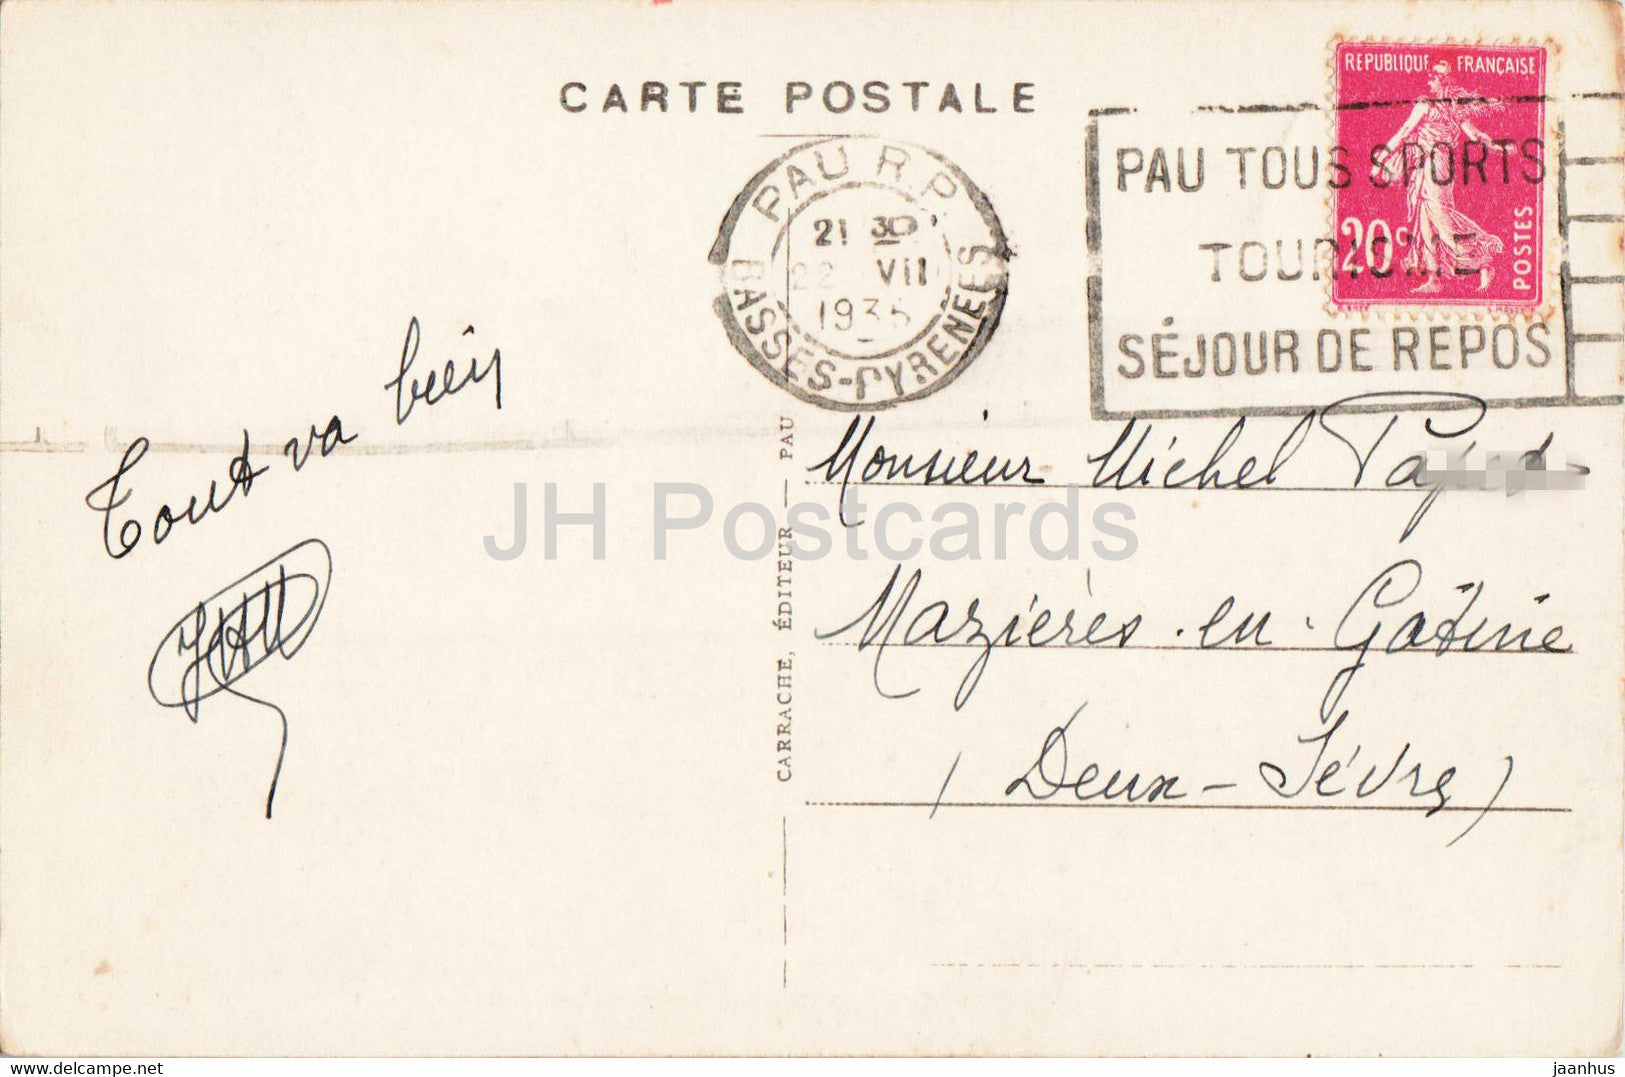 CARTE POSTALE
REPUBLIQUE FRANÇAISE
20c
POSTES
PAU R.P.
21 30
22 VII
1935
BASSES-PYRENEES
PAU TOUS SPORTS
TOURISME
SÉJOUR DE REPOS
Tout va bien
Monsieur Michel
Mazières-en-Gâtine
(Deux-Sèvres)
CARRACHE, ÉDITEUR — PAU
JH Postcards
delcampe.net
jaanhus